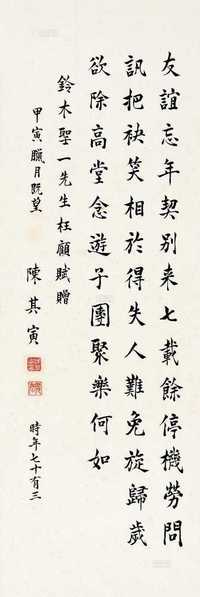 友誼忘年契別来七載餘停機勞問
訊把袂笑相於得失人難免旋歸歲
欲除高堂念遊子團聚樂何如
鈴木聖一先生枉顧賦贈
甲寅臘月既望
陳其寅
時年七十有三